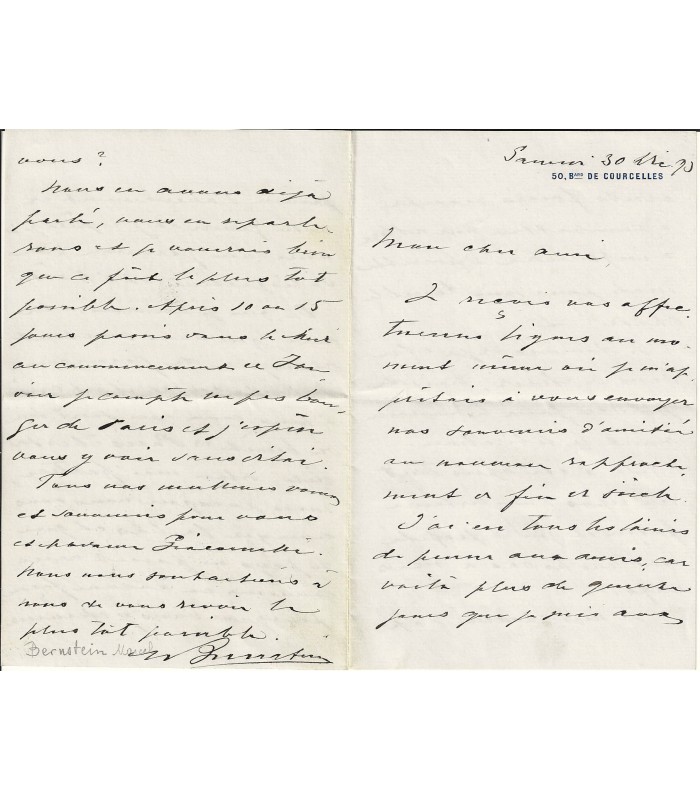 Samedi 30 Déc 93
50, BARD DE COURCELLES
Mon cher ami,
Je reçois vos affec
tueuses lignes au mo-
ment même où je m'ap
prêtais à vous envoyer
nos souvenirs d'amitié
au nouveau rapproche
ment de fin de siècle.
J'ai eu tous les loisirs
de penser aux amis, car
voilà plus de quinze
jours que je suis
vous?
Nous en avons déjà
parlé, nous en reparle-
rons et je voudrais bien
que ce fût le plus tôt
possible. Après 10 ou 15
jours passés dans le Midi
au commencement de Jan
vier je compte ne pas bou-
ger de Paris et j'espère
vous y voir sans délai.
Tous nos meilleurs voeux
et souvenirs pour vous
et Madame Giacomelli.
Nous nous souhaitons à
nous de vous revoir le
plus tôt possible.
Bernstein
Bernstein Marcel